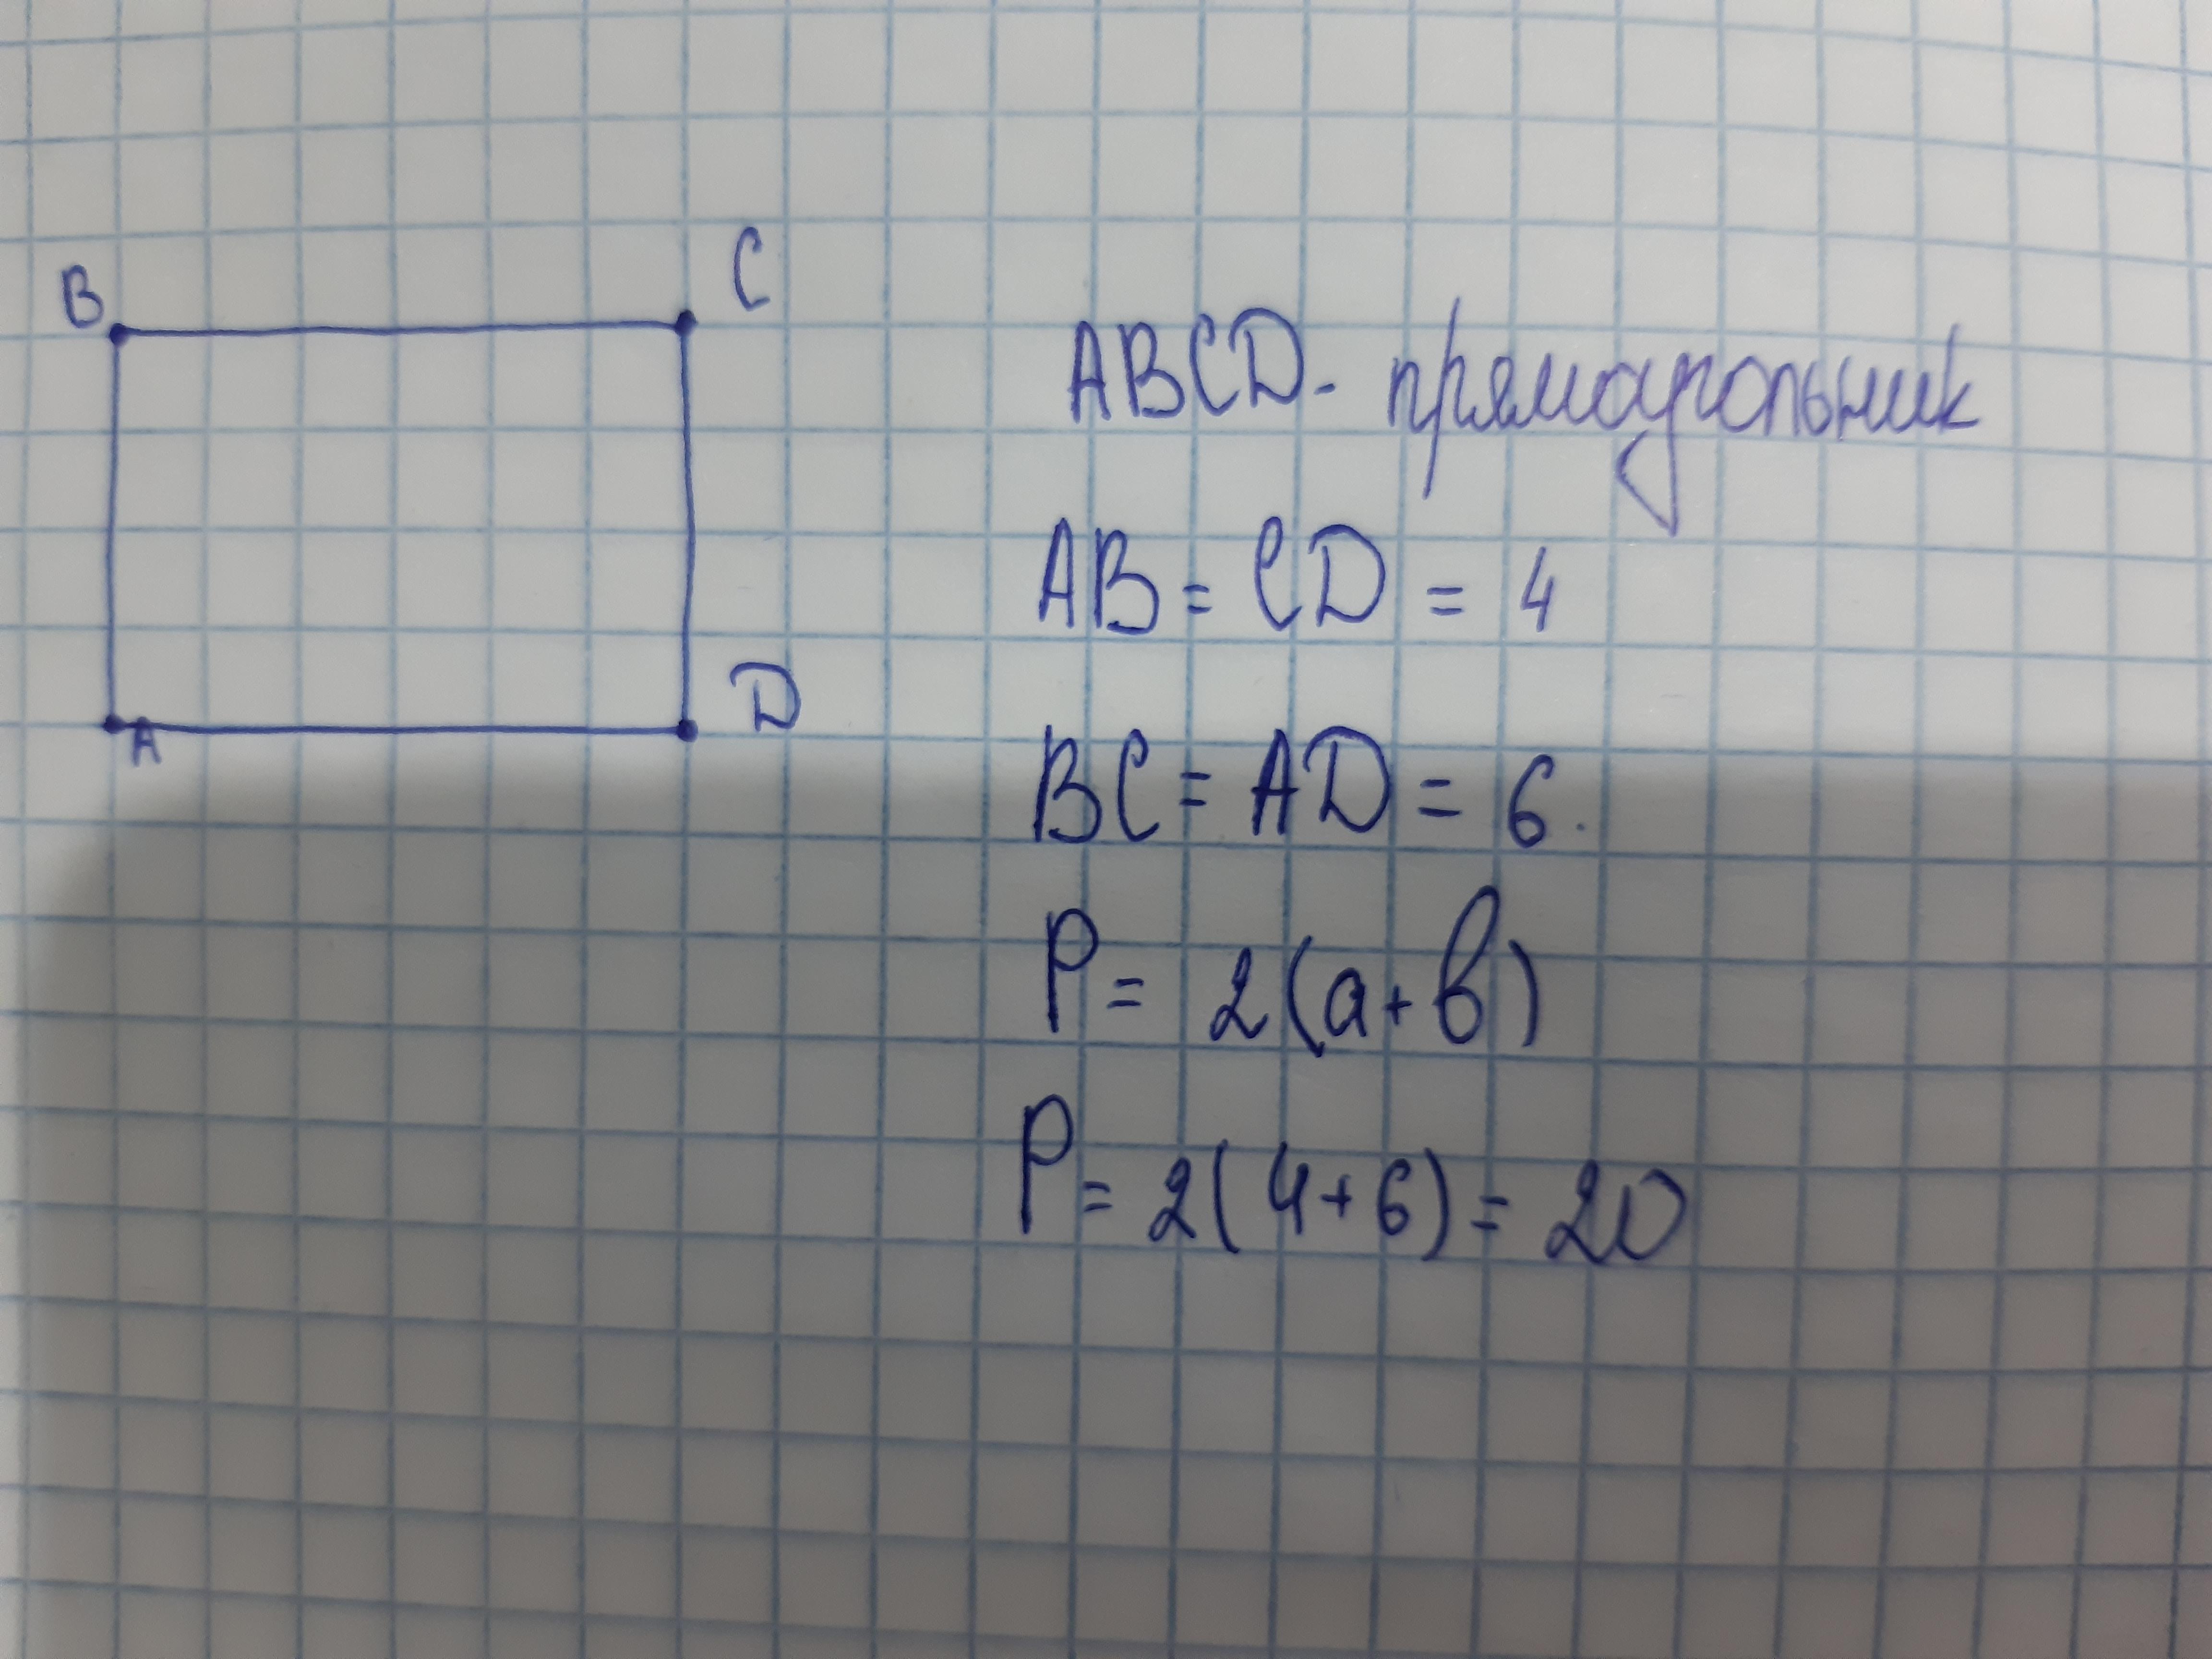 B
C
A
D
ABCD - прямоугольник
AB = CD = 4
BC = AD = 6.
P = 2(a+b)
P = 2(4+6) = 20